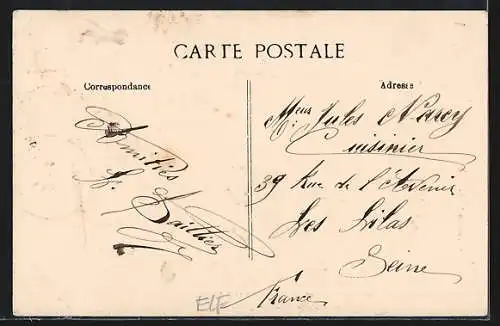 CARTE POSTALE
Correspondance
Amitiés
Adresse
Mr Jules Narcy
Cuisinier
39 Rue de l'Avenir
Les Lilas
Seine
France
ELF